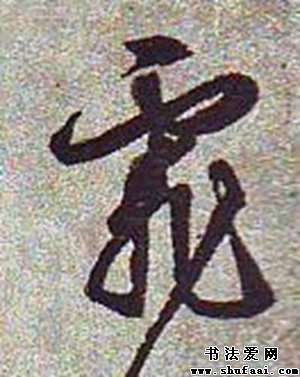 霏
书法爱网
www.shufaai.com